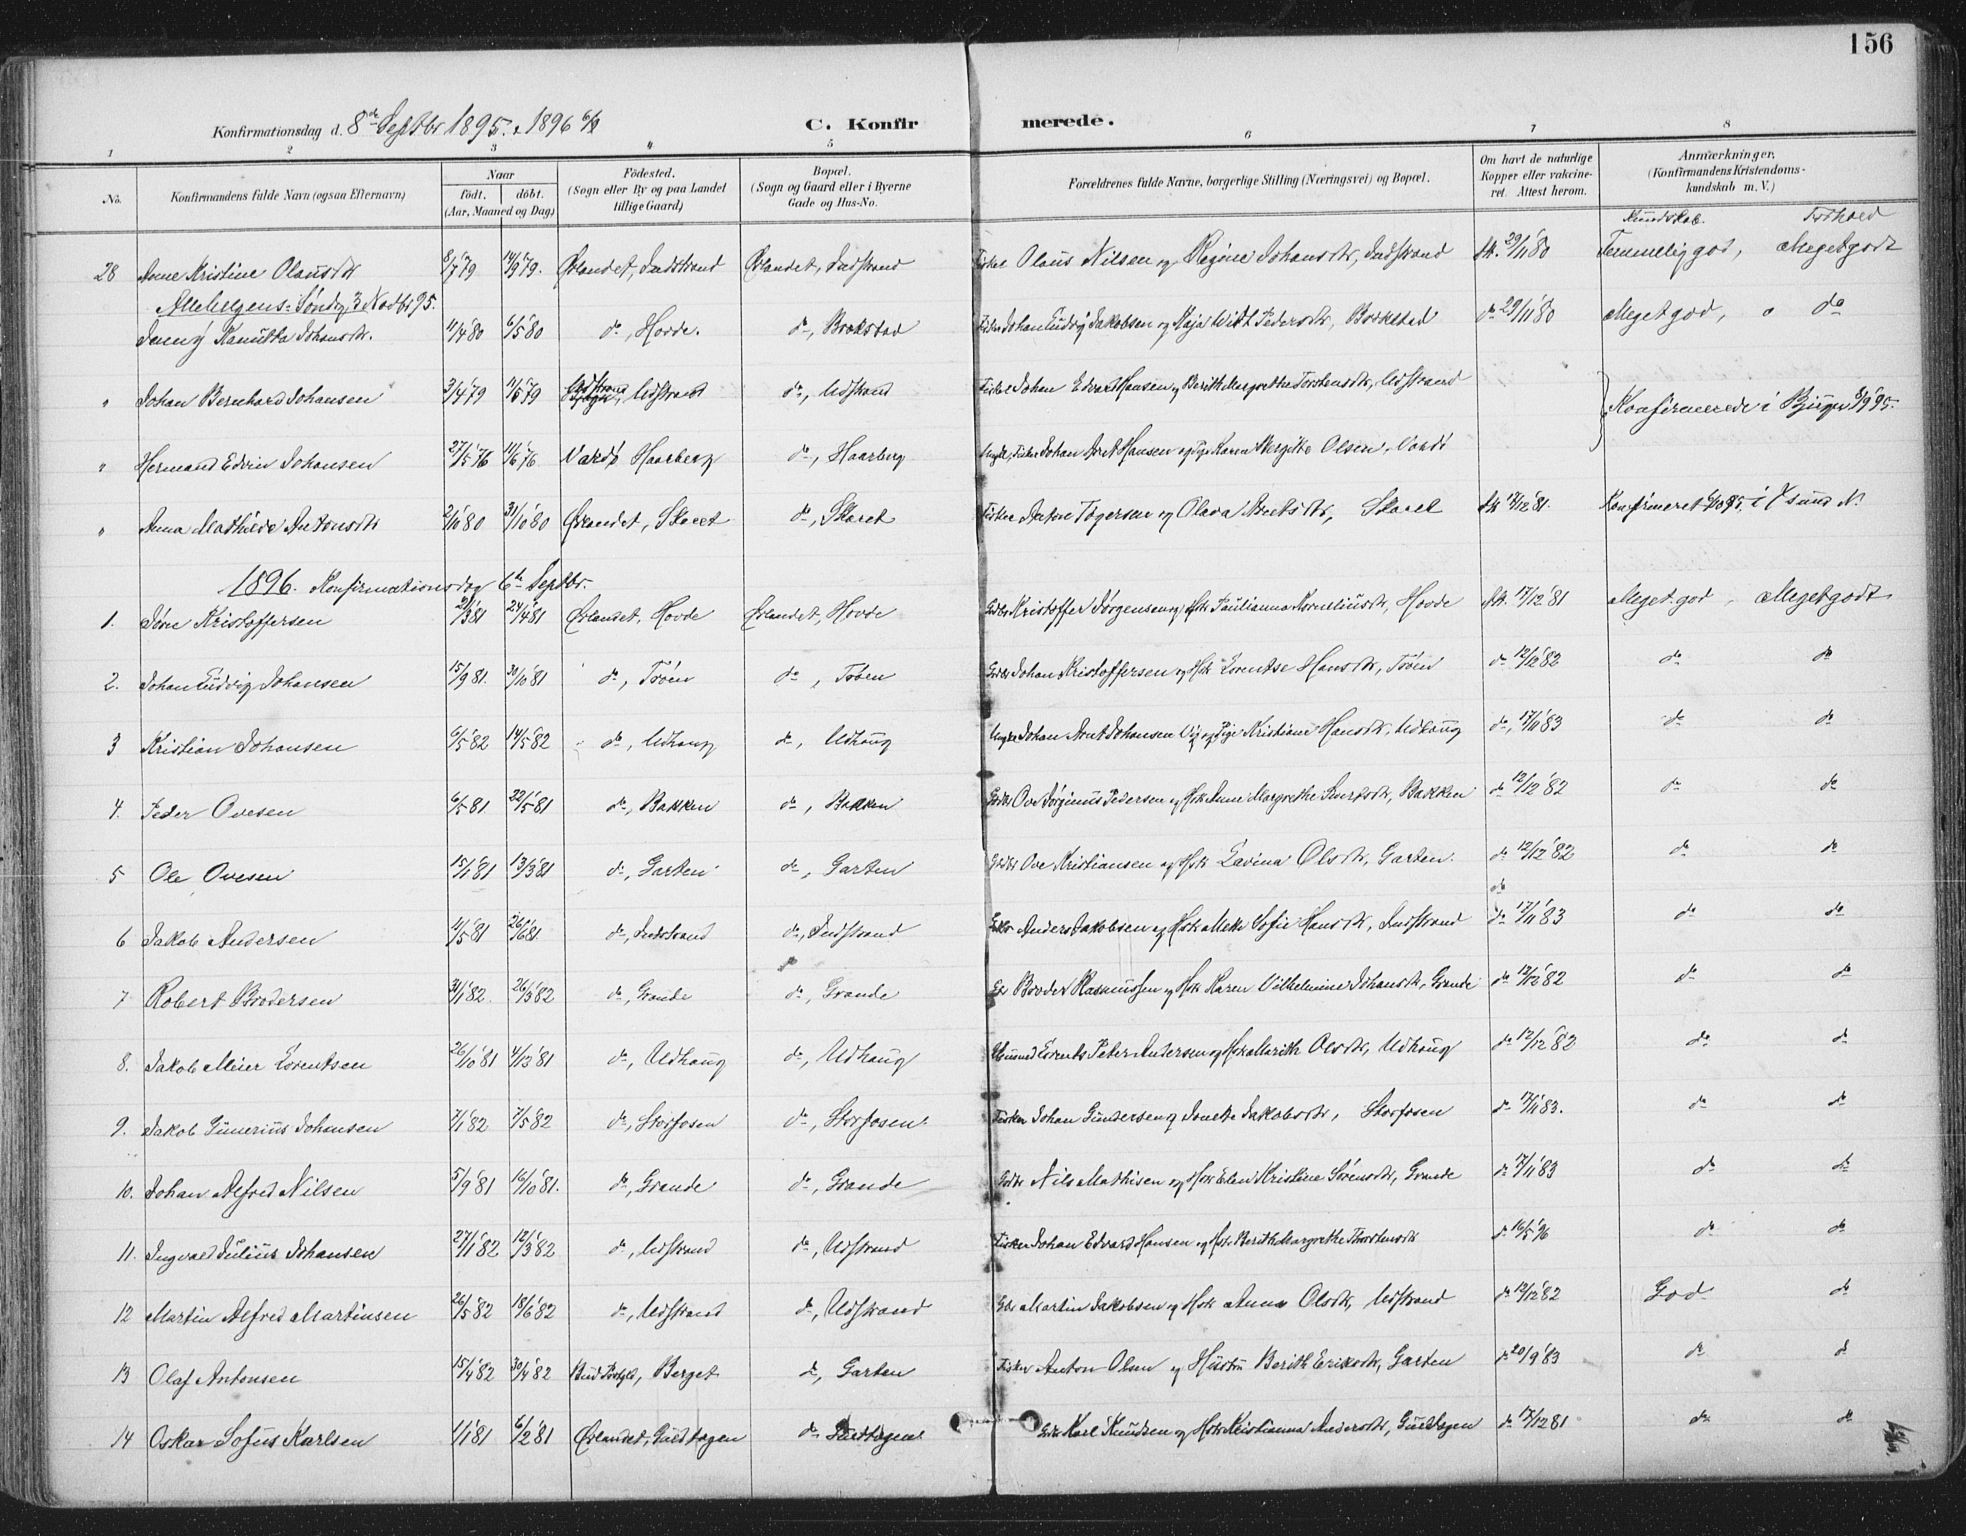 156
Konfirmationsdag d. 8de Septbr 1895. & 1896 6/9 C. Konfirmerede.
1 2 3 4 5 6 7 8
No. Konfirmandens fulde Navn (ogsaa Efternavn) Naar födt. döbt. (Aar, Maaned og Dag) Födested. (Sogn eller By og paa Landet tillige Gaard) Bopæl. (Sogn og Gaard eller i Byerne Gade og Hus-No. Forældrenes fulde Navne, borgerlige Stilling (Næringsvei) og Bopæl. Om havt de naturlige Kopper eller vaccineret. Attest herom. Anmærkninger. (Konfirmandens Kristendomskundskab m. V.)
Kundskab. Forhold
28 Anne Kristine Olausdtr 8/7 79 14/9 79. Ørlandet, Indstrand Ørlandet, Indstrand Fisker Olaus Nilsen og Regine Johansdtr, Indstrand Att. 29/11 80 Temmelig god, Meget godt
Allehelgens-Søndag, 3 Novbr 95.
Jenny Kanutta Johansdtr. 11/4 80 6/5 80 do, Hovde. do, Brekstad Fisker Johan Ludvig Jakobsen og Kaja Pedersdtr, do 29/11 80 Meget god, do
" Johan Bernhard Johansen 3/4 79 11/5 79 Udstrand do, Udstrand Fisker Johan Edvard Hansen og Berith Margrethe Torstensdtr, Udstrand Konfirmerede i Bjugn 8/9 95.
" Hermand Edvin Johansen 27/5 76 11/6 76 Vardø Haarberg do, Haarberg Ungk, Fisker Johan Hansen og Pige Karen Olsen, Vardø
" Anna Mathilde Antonsdtr 2/10 80 31/10 80 Ørlandet, Skaret do, Skaret Fisker Anton Tøgersen og Olava Skaret Att 17/12 81. Konfirmeret 6/10 95, i
1896. Konfirmationsdag 6te Septbr.
1. Jøne Kristoffersen 2/3 81 24/4 81 Ørlandet, Hovde Ørlandet, Hovde Gdbr Kristoffer Jørgensen og Hstr Paulianna Korneliusdtr, Hovde Att. 17/12 81 Meget god, Meget godt
2. Johan Ludvig Johansen 15/9 81. 30/10 81 do, Trøen do, Trøen Gdbr Johan Kristoffersen og Hstr Lorentse Hansdtr, Trøen do 12/12 82 do do
3 Kristian Johansen 6/5 82 14/5 82 do, Udhaug do, Udhaug Ungk Johan Arnt Johansen og Pige Kristiane Hansdtr, Udhaug do, 17/11 83 do do
4. Peder Ovesen 6/5 81. 22/5 81 do, Bakken do, Bakken Gdbr Ove Jørginus Pedersen og Hstr Anne Margrethe Bakken do 12/12 82 do do
5 Ole Ovesen 15/1 81 13/3 81 do, Garten do, Garten Gdbr Ove Kristiansen og Hstr Lavina Olsdtr, Garten. do 12/12 82 do do
6 Jakob Andersen 11/5 81 26/6 81. do, Indstrand do, Indstrand Gdbr Anders Jakobsen og Hstr Mette Sofie Hansdtr, Indstrand do 17/11 83 do do
7 Robert Brodersen 31/1 82. 26/3 82 do, Grande do, Grande Gdbr Broder Rasmussen og Hstr Karen Vilhelmine Johansdtr, Grande do 12/12 82 do do
8. Jakob Meier Lorentsen 26/10 81 4/12 81 do, Udhaug do, Udhaug Husmd Lorents Peter Andersen og Hstr Marith Olsdtr, Udhaug do 12/12 82 do do
9. Jakob Gunerius Johansen 7/1 82 7/5 82 do, Storfosen do, Storfosen. Fisker Johan Gundersen og Jonette Jakobsdtr, Storfosen do 17/11 83. do do
10. Johan Alfred Nilsen 5/9 81 16/10 81. do, Grande do, Grande Gdbr Nils Mathisen og Hstr Elen Kristine Sørensdtr, Grande do 17/11 83 do do
11. Ingvald Julius Johansen 27/1 82 12/3 82 do, Udstrand do, Udstrand Fisker Johan Edvard Hansen og Hstr Berith Margrethe Thorstensdtr do 16/5 96 do do
12 Martin Alfred Martinsen 26/5 82 18/6 82 do, Udstrand do, Udstrand Gdbr Martin Jakobsen og Hstr Anna Olsdtr, Udstrand do 12/12 82 God do
13 Olaf Antonsen 15/4 82 30/4 82 Bud Prstgld, Berget do, Garten Fisker Anton Olsen og Hustru Berith Eriksdtr, Garten do 20/9 83 do do
14 Oskar Sofus Karlsen 1/1 81 6/2 81 Ørlandet, Guldtagen do Guldtagen Gdbr Karl Knudsen og Hstr Kristianna Andersdtr, Guldtagen do 17/12 81 do do